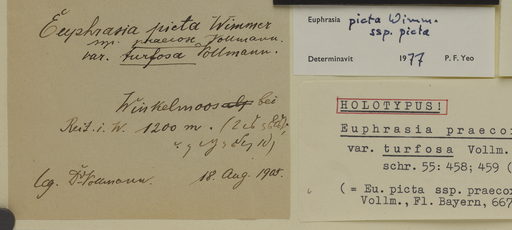 Euphrasia picta Wimmer
ssp. praecox Vollmann.
var. turfosa Vollmann.
Winkelmoosalp bei
Reit i. W. 1200 m.
leg. Dr. Vollmann. 18. Aug. 1905.
Euphrasia picta Wimm.
ssp. picta
Determinavit 1977 P. F. Yeo
HOLOTYPUS!
Euphrasia praecox
var. turfosa Vollm.
schr. 55: 458; 459 (
( = Eu. picta ssp. praecox
Vollm., Fl. Bayern, 667